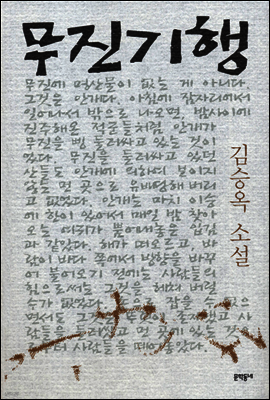 무진기행
무진에 명산물이 없는 게 아니다.
그것은 안개다. 아침에 잠자리에서
일어나서 밖으로 나오면, 밤사이에
진주해온 적군들처럼 안개가
무진을 삥 둘러싸고 있는 것이
었다. 무진을 둘러싸고 있던
산들도 안개에 의하여 보이지
않는 먼 곳으로 유배당해 버리
고 없었다. 안개는 마치 이승
에 한이 있어서 매일 밤 찾아
오는 여귀가 뿜어내놓은 입김
과 같았다. 해가 떠오르고, 바
람이 바다 쪽에서 방향을 바꾸
어 불어오기 전에는 사람들의
힘으로써는 그것을 헤쳐 버릴
수가 없었다. 잡을 수 없으
면서도 그것은 존재했고 사
람들을 둘러쌌고 먼 곳에 있는 것
부터 사람들을 떼어놓았다.
김승옥 소설
문학동네